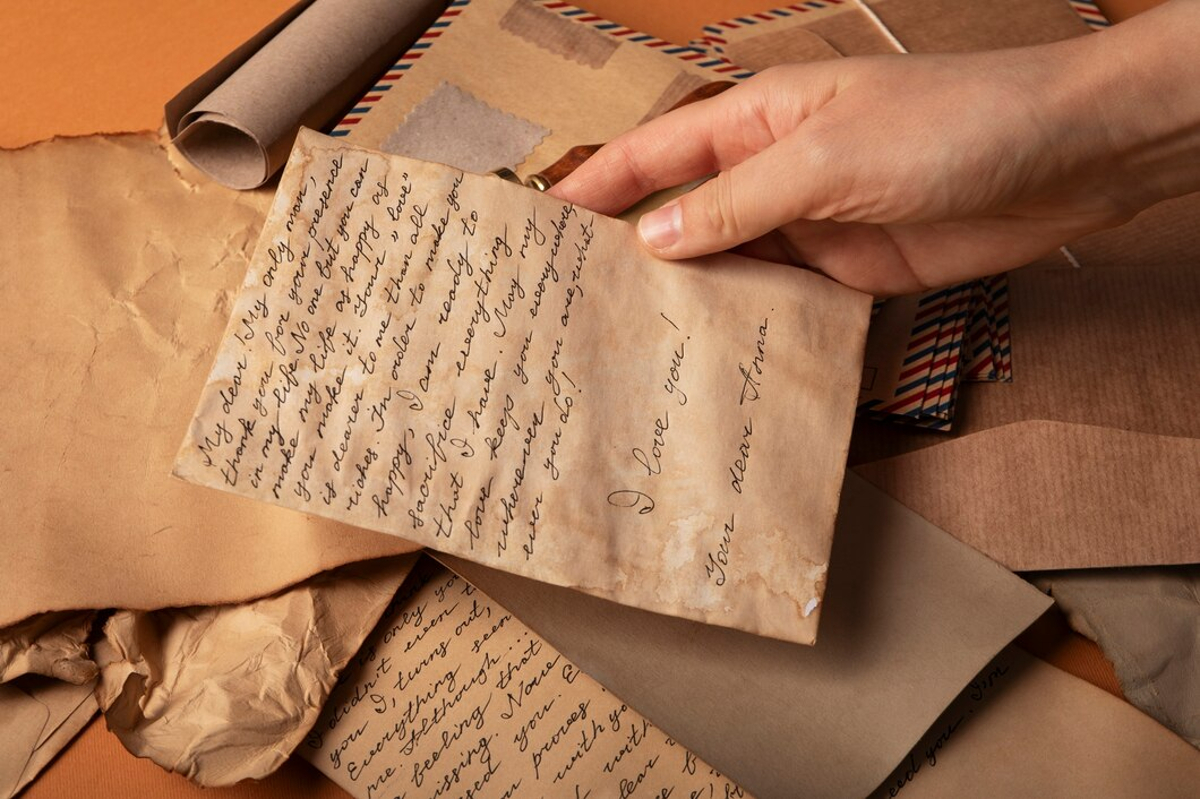 My dear! My only man,
thank you for your presence
in my life. No one but you can
make my life as happy as
you make it. Your „love"
is dearer to me than all
riches. In order to make you
happy, I am ready to
sacrifice everything
that I have. May my
love keeps you everywhere,
wherever you are, what
ever you do!
I love you!
Your dear Anna.
only
didn't even
you I, turns out,
Everything seem
me. Although...
feeling that
issing. Now
you
proves
with
with
you. I'm